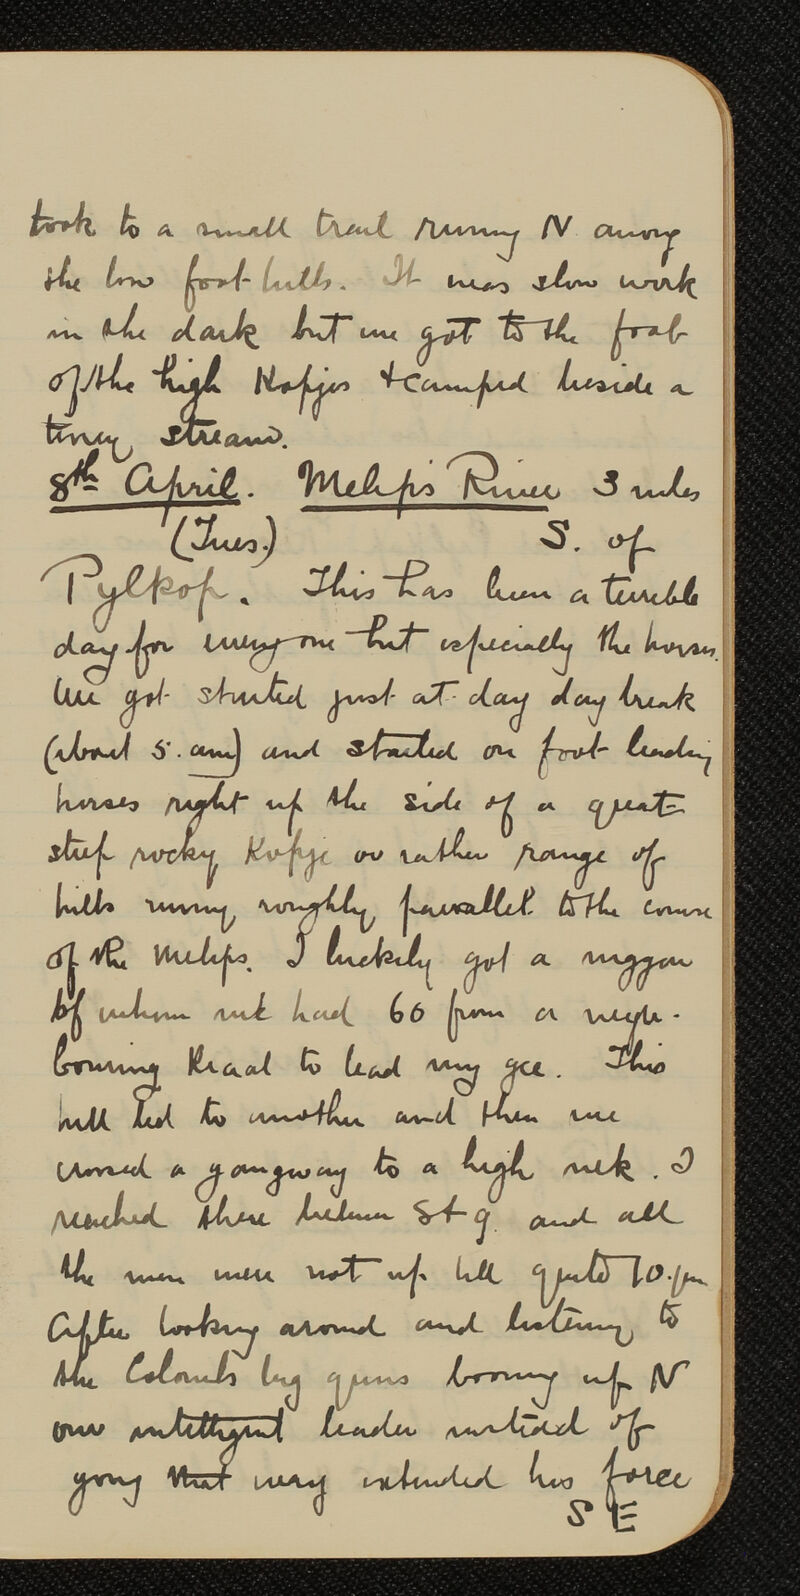 took to a small trail running N among
the low foot-hills. It was slow work
in the dark but we got to the foot
of the high Kopjes & camped beside a
tiney stream.
8th April. Melips River 3 miles
(Tues.) S. of
Pylkop. This has been a terrible
day for everyone but especially the horses.
We got started just at day day break
(about 5. am) and started on foot leading
horses right up the side of a great
steep rocky Kopje or rather range of
hills runing roughly parallel to the course
of the Melips. I luckily got a
of whom we had 60 from a neigh-
bouring Kraal to lead my gee. This
hill led to another and then we
crossed a gangway to a high nek. I
reached there between 8 & 9 and all
the men were not up till quite 10.
After looking around and listening to
the Colonels big guns booming up N
our intelligent leader instead of
going that way extended his force
S E